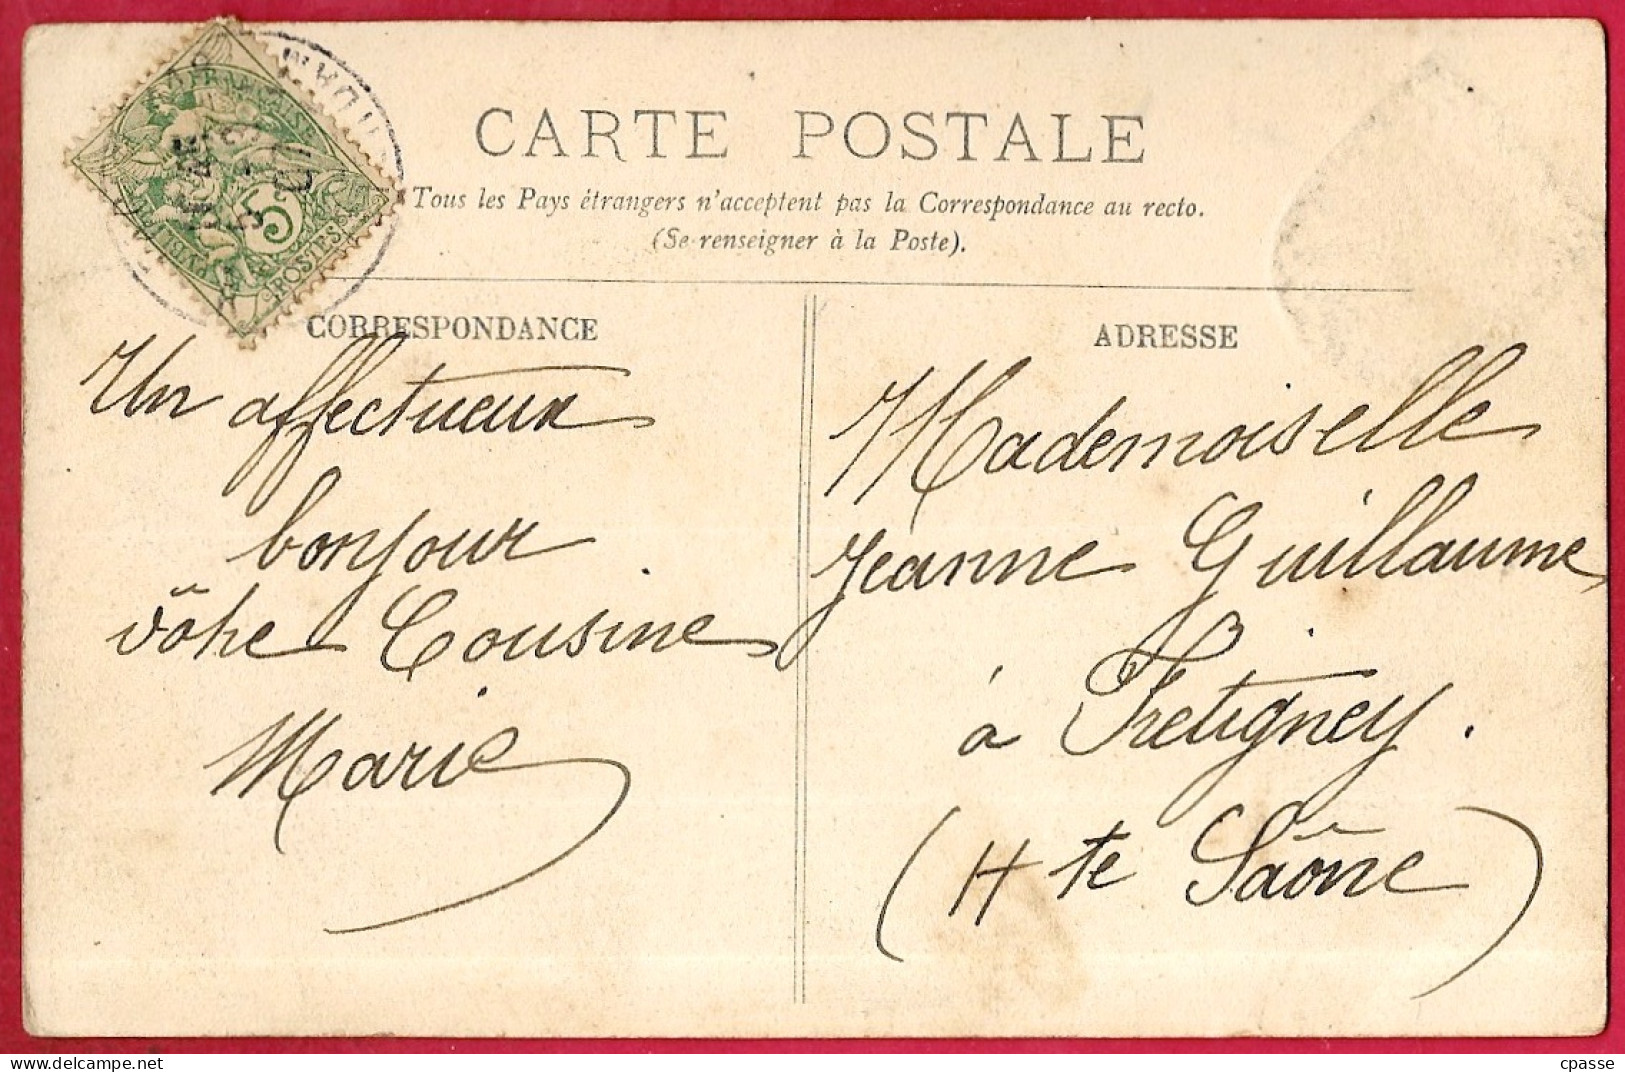 CARTE POSTALE
Tous les Pays étrangers n'acceptent pas la Correspondance au recto.
(Se renseigner à la Poste).
FRANÇAISE
POSTES
5
CORRESPONDANCE
Un affectueux
bonjour
vôtre Cousine
Marie
ADRESSE
Mademoiselle
Jeanne Guillaume
à Fretigney.
(Hte Saône)
cpasse